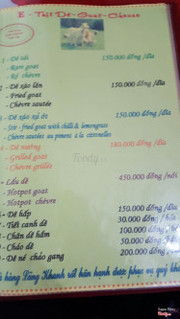 E - Thịt Dê - Goat - Chèvre
1 - Dê tái 150.000 đồng /đĩa
- Rare goat
- Rú chèvre
- Dê xào lăn 150.000 đồng /đĩa
- Fried goat
- Chèvre sautée
- Dê xào xả ớt 150.000 đồng /đĩa
- Stir-fried goat with chilli & lemongrass
- Chèvre sautée au piment à la citronelles
- Dê nướng 180.000 đồng /đĩa
- Grilled goat
- Chèvre grillée
- Lẩu dê 450.000 đồng /nồi
- Hotpot goat
- Hotpot chèvre
- Dê hấp 150.000 đồng /đĩa
- Tiết canh dê 30.000 đồng /
- Chân dê hầm 100.000 đồng
- Cháo dê 50.000 đồng
- Dê né cháo gang 200.000 đồng
hàng Long Khanh rất hân hạnh được phục vụ quý khá